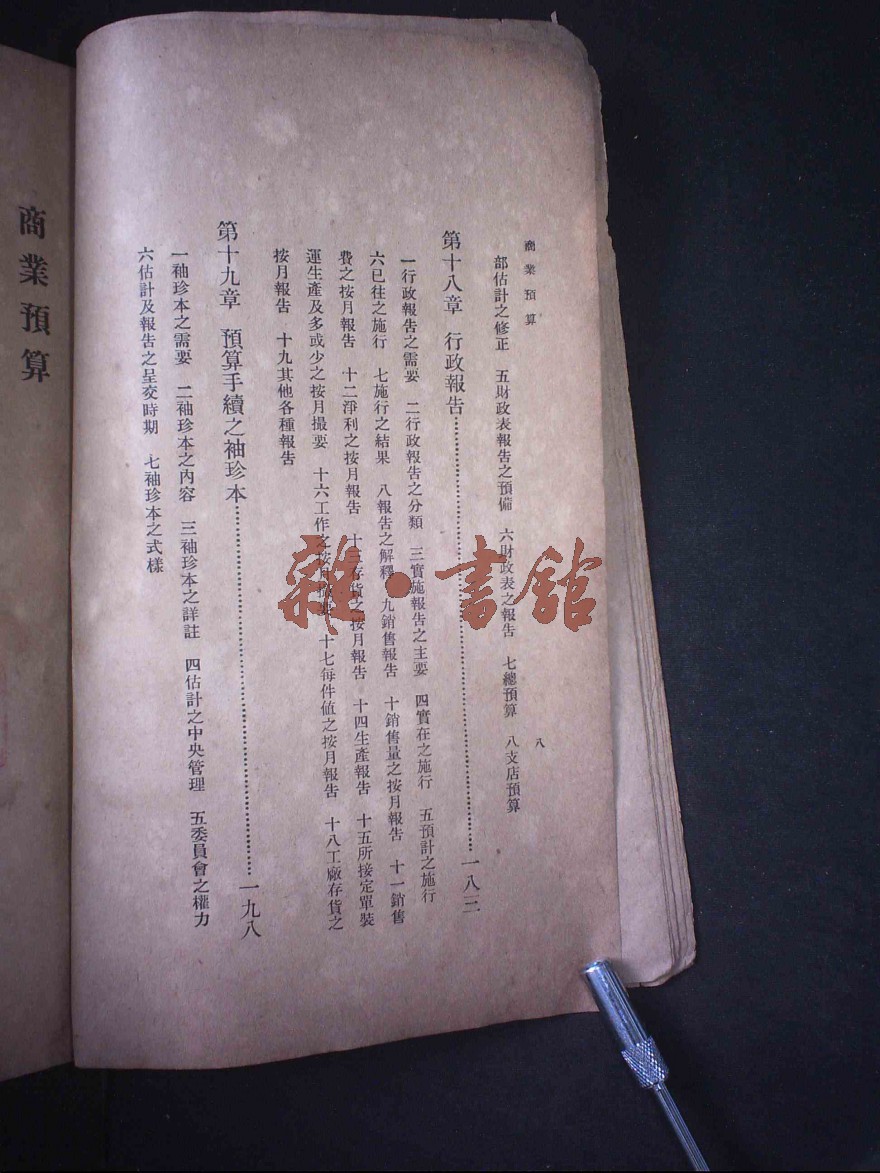 商業預算
八
部估計之修正　五財政表報告之預備　六財政表之報告　七總預算　八支店預算
第十八章　行政報告……………………………………一八三
一行政報告之需要　二行政報告之分類　三實施報告之主要　四實在之施行　五預計之施行
六已往之施行　七施行之結果　八報告之解釋　九銷售報告　十銷售量之按月報告　十一銷售
費之按月報告　十二淨利之按月報告　十三存貨之按月報告　十四生產報告　十五所接定單裝
運生產及多或少之按月撮要　十六工作之按月撮要　十七每件値之按月報告　十八工廠存貨之
按月報告　十九其他各種報告
第十九章　預算手續之袖珍本……………………………………一九八
一袖珍本之需要　二袖珍本之內容　三袖珍本之詳註　四估計之中央管理　五委員會之權力
六估計及報告之呈交時期　七袖珍本之式樣
商業預算
雜·書館